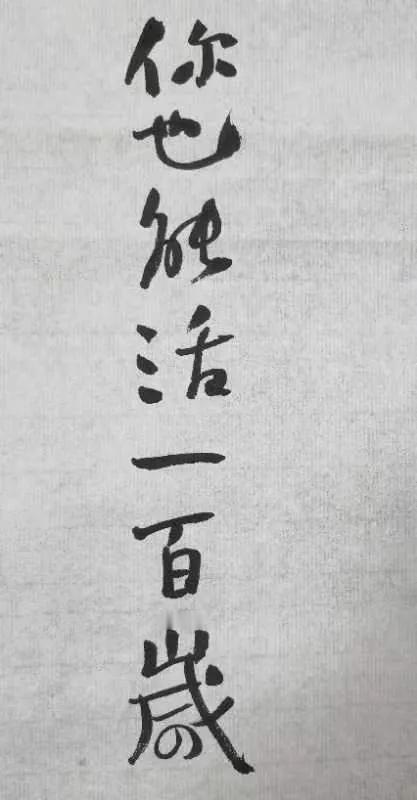 你也能活一百歲